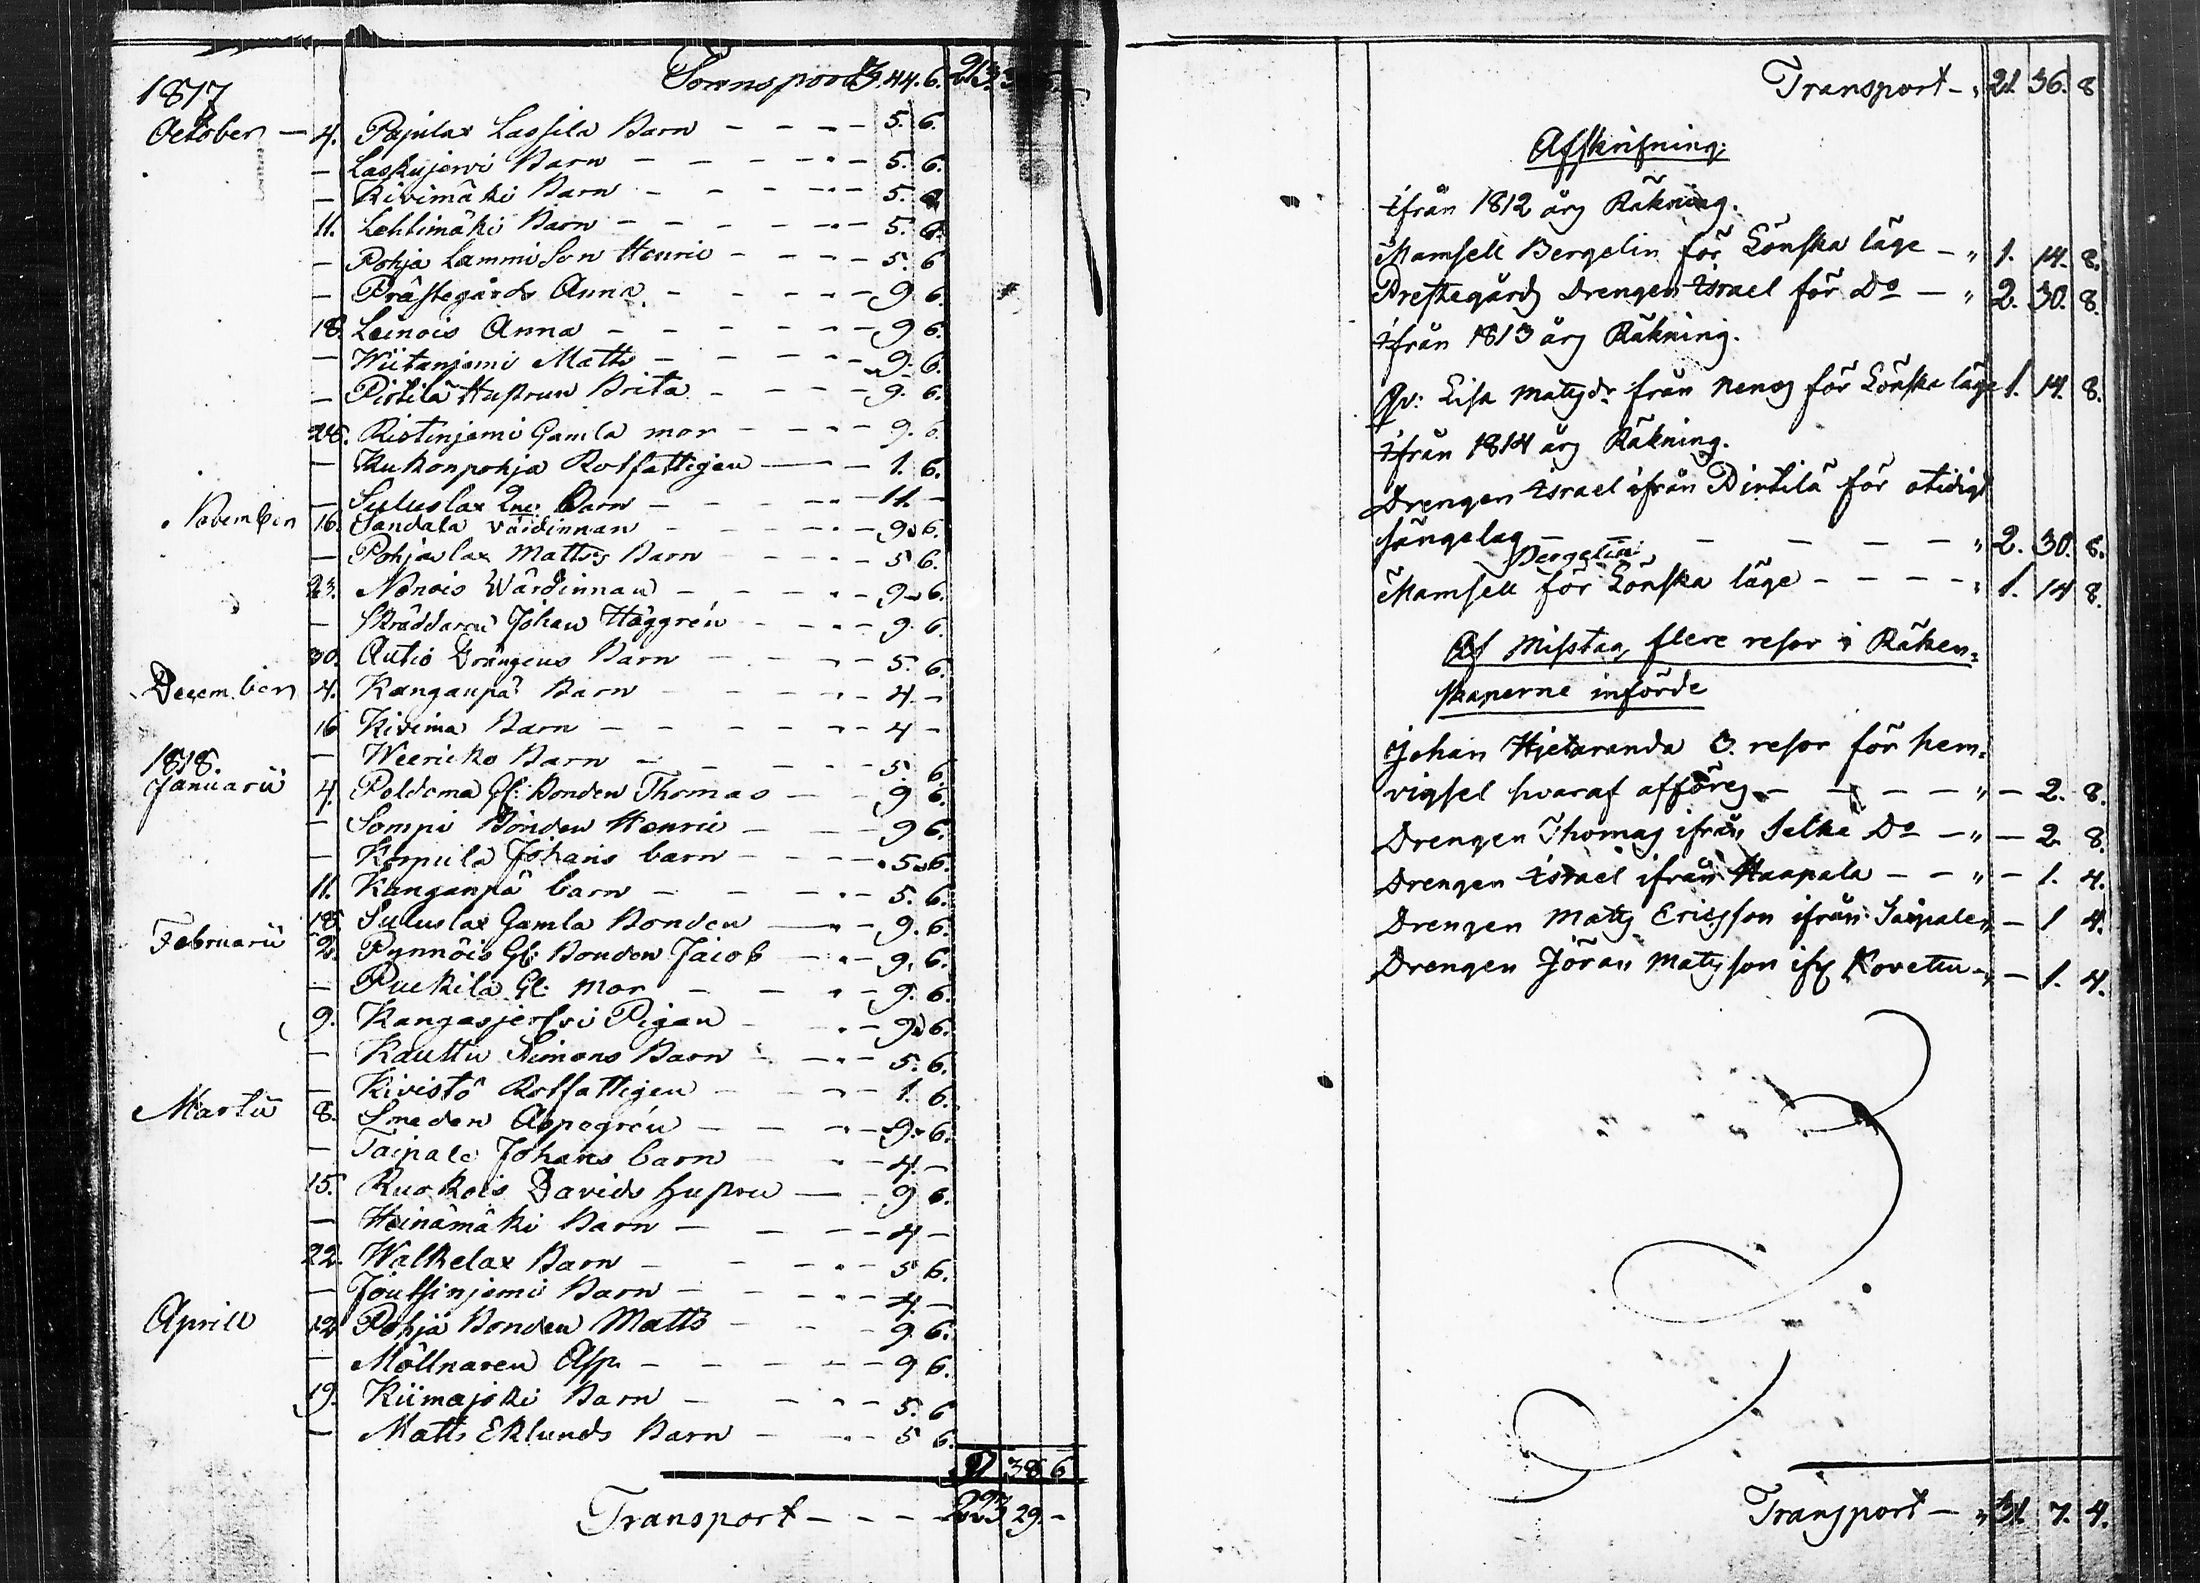 1817
Transport 44. 6.
October — 4. Pajulax Lassila Barn — 5. 6.
— Laskujervi Barn — 5. 6.
— Kivimäki Barn — 5. 6.
11. Lehtimäki Barn — 5. 6.
— Pohja Lammi Son Henric — 5. 6
— Prästegårds Anna — 9. 6.
18. Leinois Anna — 9 6.
— Wiitanjemi Matts — 9. 6.
— Pirtilä Hustrun Brita — 9. 6.
Ristinjemi Gamla mor — 9. 6.
— Kukonpohja Rotfattigen — 1. 6.
— Suluslax Barn — 11. —
November 16. Sandala värdinnan — 9. 6.
— Pohjaslax Mattss Barn — 5 6.
23. Nonois Wärdinnan — 9. 6.
— Skräddaren Johan Häggrén — 9. 6.
30. Autio Drängens Barn — 5. 6.
December 4. Kanganpä Barn — 4. —
16 Kivima Barn — 4 —
— Weericko Barn — 5. 6.
1818.
Januarii 4. Poldoma Gl: Bonden Thomas — 9 6.
— Sompi Bonden Henric — 9 6.
— Korpula Johans barn — 5. 6.
11. Kanganpä barn — 5. 6.
18. Suluslax Gamla Bonden — 9. 6.
Februarii 2. Pynnöis Gl: Bonden Jacob — 9. 6.
— Puckila Gl: Mor — 9. 6.
9. Kangasjerfvi Pigan — 9. 6.
— Kauttu Simons Barn — 5. 6.
— Kivistö Rotfattigen — 1. 6.
Martii 8. Smeden Aspegrén — 9. 6.
— Taipale Johans barn — 4. —
15. Ruokois Davids hustru — 9 6.
— Heinämäki Barn — 4 —
22. Walkelax Barn — 5 6.
— Joutsinjemi Barn — 4. —
Aprill 12 Pohja Bonden Matts — 9 6.
— Möllnaren Asp — 9 6.
19. Kiimajoki Barn — 5. 6
— Matts Eklunds Barn — 5 6.
38 6
Transport — — — 29. —
Transport — „ 21. 36. 8
Afskrifning:
ifrån 1812 års Räkning.
Mamsell Bergelin för Lönska läge — „ 1. 14. 8.
Prestegårds Drengen Israel för Do — „ 2. 30. 8.
ifrån 1813 års Räkning.
Qv: Lisa Matsdr från Nenois för Lönska läge 1. 14. 8.
ifrån 1814 års Räkning.
Drengen Israel ifrån Pirtilä för otidigt
sängelag — — — — — „ 2. 30. 8.
Bergelin
Mamsell för Lönska läge — — — — „ 1. 14 8.
Af Misstag flere resor i Räken=
skaperne införde
Johan Hjetaranda 3. resor för hem=
vigsel hvaraf afföres — — — — „ — 2. 8.
Drengen Thomas ifrån Selke Do — „ — 2 8.
Drengen Israel ifrån Haapala — — „ — 1. 4.
Drengen Mats Ericsson ifrån Taipale „ — 1 4.
Drengen Jöran Matsson ifr Kovettu — „ — 1. 4.
Transport — „ 31. 7. 4.